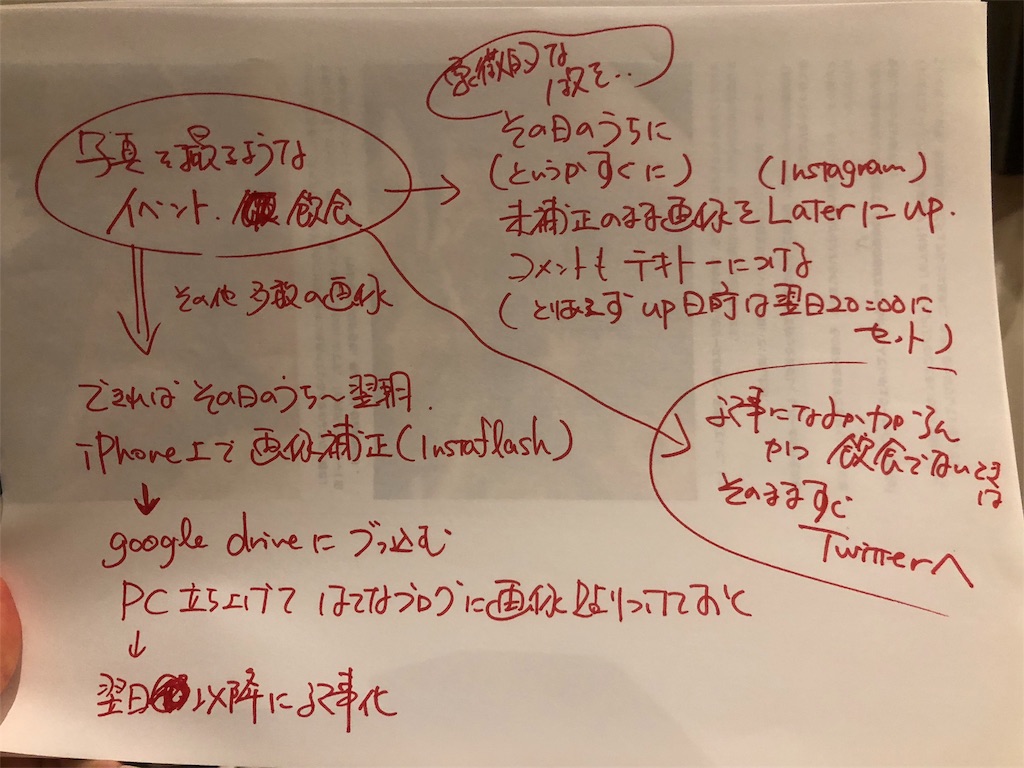 写真を撮るような
イベント、飲食
象徴的な
1枚を‥
その日のうちに
(というかすぐに) (Instagram)
未補正のまま画像をLaterにup.
コメントもテキトーにつける
(とりあえずup日時は翌日20:00に
セット)
その他多数の画像
できればその日のうち〜翌朝.
iPhone上で画像補正(Instaflash)
↓
google driveにブッ込む
PC立ち上げてはてなブログに画像はりつけておく
↓
翌日以降に記事化
記事になるかわからん
かつ飲食でないとき
は
そのまますぐ
Twitterへ